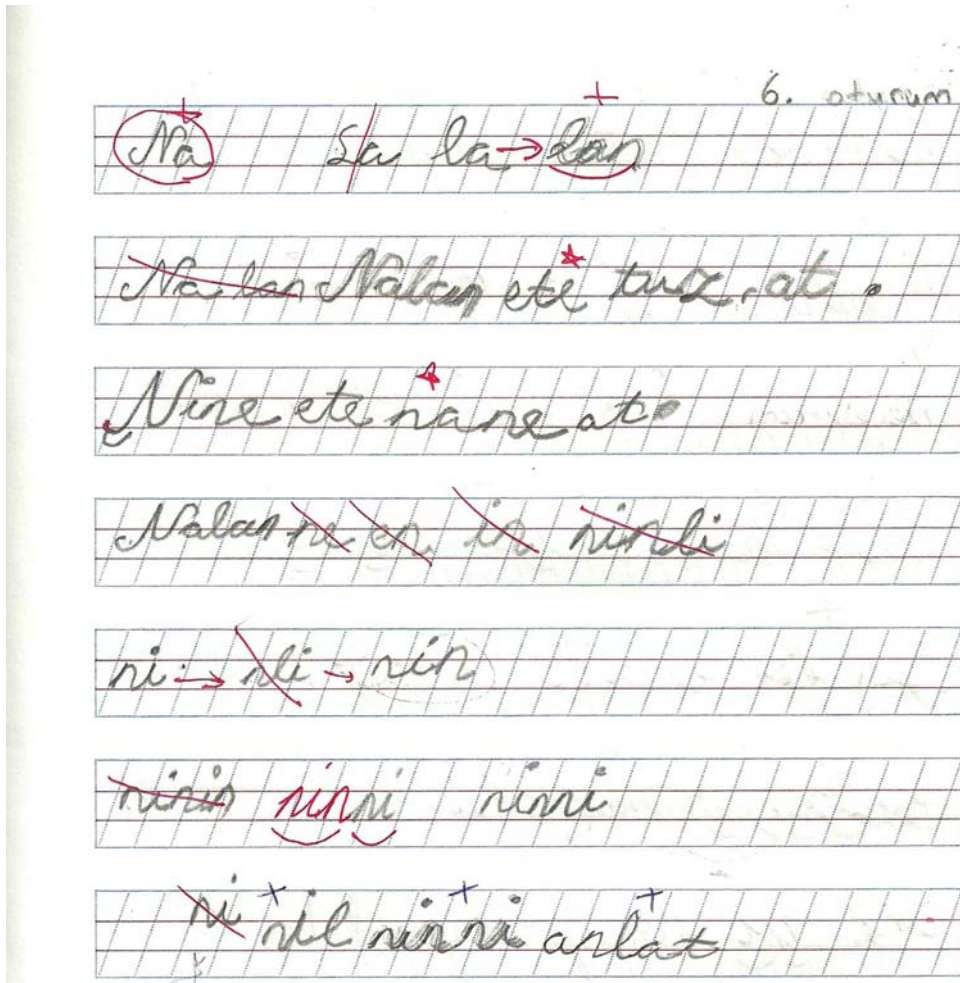 6. oturum
Na La la → lan
Na lan Nalan ete tuz at.
Nine ete nane at.
Nalan ne en in nin li
ni → nli → nin
ninin ninni ninni
ni nil ninni anlat